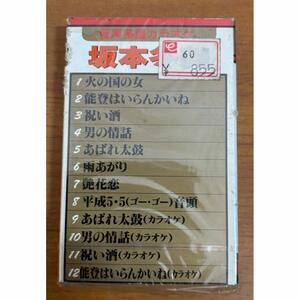 坂本
60
¥ 855
1 火の国の女
2 能登はいらんかいね
3 祝い酒
4 男の情話
5 あばれ太鼓
6 雨あがり
7 艶花恋
8 平成5・5(ゴー・ゴー)音頭
9 あばれ太鼓(カラオケ)
10 男の情話(カラオケ)
11 祝い酒(カラオケ)
12 能登はいらんかいね(カラオケ)